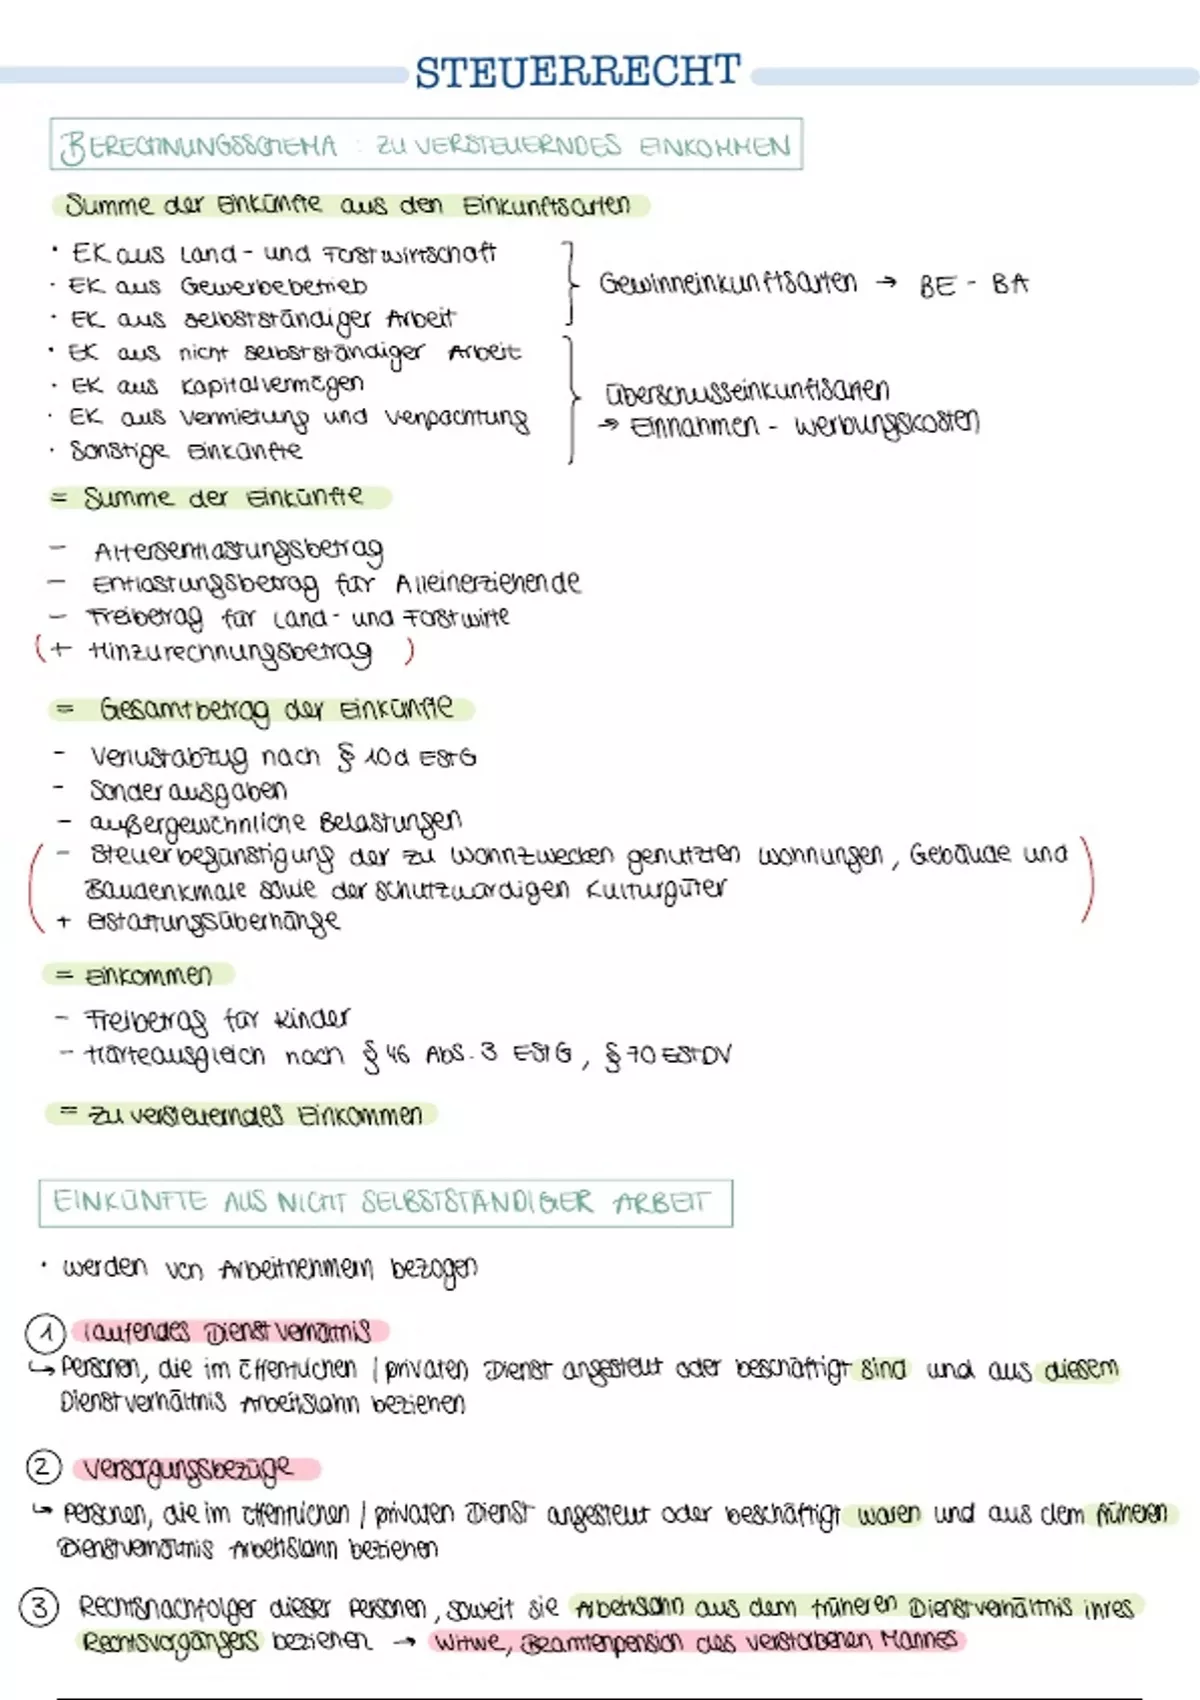 STEUERRECHT
BERECHNUNGSSCHEMA : ZU VERSTEUERNDES EINKOMMEN
Summe der Einkünfte aus den Einkunftsarten
· EK aus Land- und Forstwirtschaft
· EK aus Gewerbebetrieb
· EK aus selbstständiger Arbeit
Gewinneinkunftsarten → BE - BA
· EK aus nicht selbstständiger Arbeit
· EK aus Kapitalvermögen
· EK aus Vermietung und Verpachtung
· Sonstige Einkünfte
Überschusseinkunftsarten
→ Einnahmen - Werbungskosten
= Summe der Einkünfte
- Altersentlastungsbetrag
- Entlastungsbetrag für Alleinerziehende
- Freibetrag für Land- und Forstwirte
(+ Hinzurechnungsbetrag )
= Gesamtbetrag der Einkünfte
- Verlustabzug nach § 10d EStG
- Sonderausgaben
- außergewöhnliche Belastungen
( - Steuerbegünstigung der zu Wohnzwecken genutzten Wohnungen, Gebäude und
Baudenkmale sowie der schutzwürdigen Kulturgüter
+ Erstattungsüberhänge )
= Einkommen
- Freibetrag für Kinder
- Härteausgleich nach § 46 Abs. 3 EStG, § 70 EStDV
= zu versteuerndes Einkommen
EINKÜNFTE AUS NICHT SELBSTSTÄNDIGER ARBEIT
· werden von Arbeitnehmern bezogen
① laufendes Dienstverhältnis
↪ Personen, die im öffentlichen / privaten Dienst angestellt oder beschäftigt sind und aus diesem
Dienstverhältnis Arbeitslohn beziehen
② Versorgungsbezüge
↪ Personen, die im öffentlichen / privaten Dienst angestellt oder beschäftigt waren und aus dem früheren
Dienstverhältnis Arbeitslohn beziehen
③ Rechtsnachfolger dieser Personen, soweit sie Arbeitslohn aus dem früheren Dienstverhältnis ihres
Rechtsvorgängers beziehen → Witwe, Beamtenpension des verstorbenen Mannes